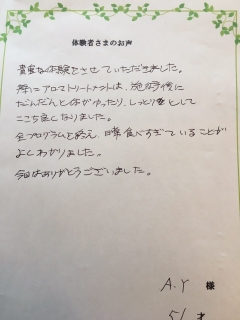 体験者さまのお声
貴重な体験をさせていただきました。
特に アロマトリートメントは、施術後に
だんだんと体がゆったり、しっとり落として
ここち良くなりました。
全プログラムを終え、日常食べすぎていることが
よくわかりました。
今回はありがとうございました。
A.Y 様
51 才